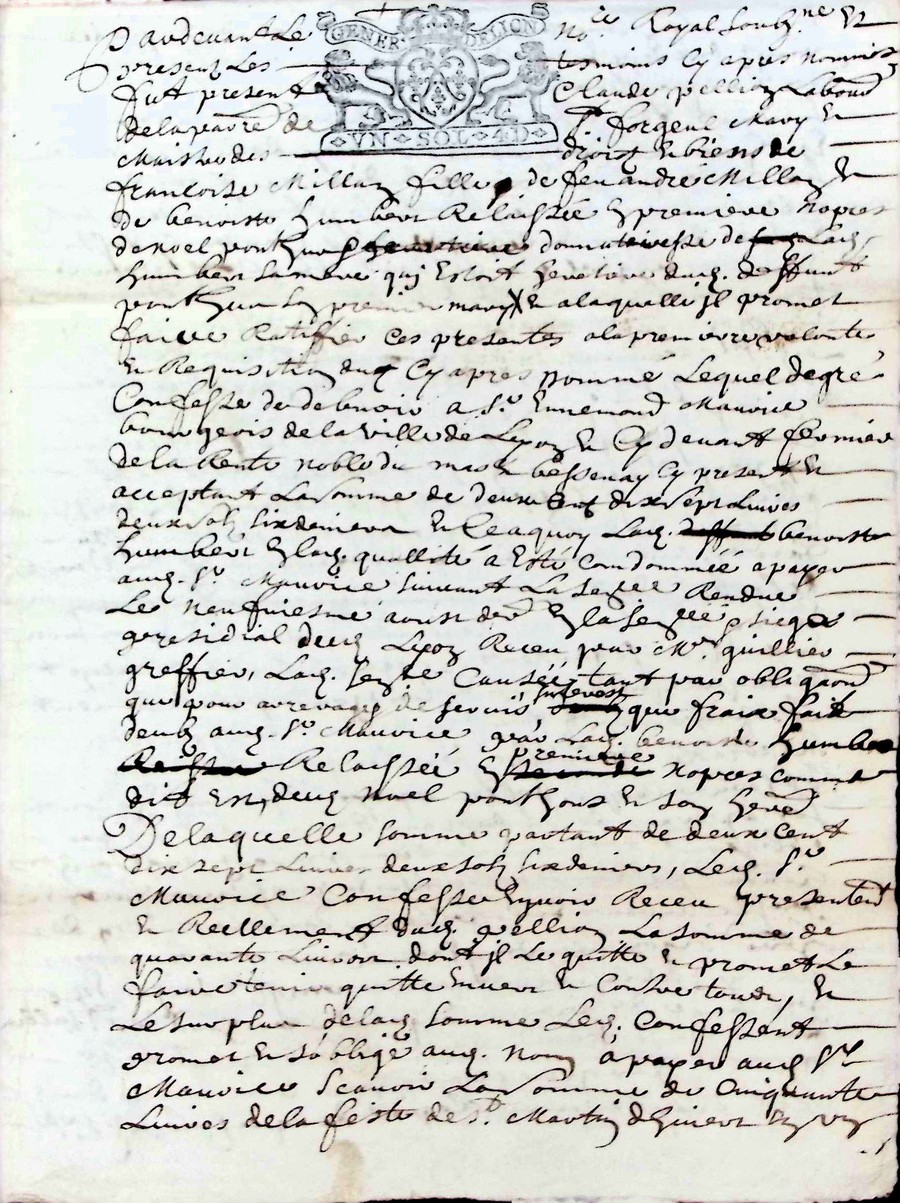 GENER. DE LION
VN SOL 4D
Pardevant Le no.re Royal soubz.né Et
present Les tesmoins Cy apres nommés
fut present Claude pellion Labour
de la parre de St forgeul Mary Et
Maistre des droist Et biens de
francoise Millan fille de feu andre Millan Et
de benoiste humbert Relaissée En premiere nopces
de noel ponthus donnateresse de Lad.
humbert sa mere qui Estoit heretiere dud. deffunt
ponthus son premier mary Et a laquelle jl promet
faire Ratiffier Ces presentes a la premiere volonte
Et Requisition du Cy apres nommé Lequel de gré
Confesse de debvoir a Sr Ennemond Maurice
bourgeois de la ville de Lyon Et Cy devant fermier
de la Rente noble du mas de bessenay Cy present Et
acceptant La somme de deux Cent dix sept Livres
deux solz six deniers En Ce a quoy Lad. deffunte benoiste
humbert En lad. quallité a Esté Condamnée a payer
aud. Sr Maurice suivant La sence Rendue
Le neufviesme aoust der En la sencée p siege
presidial dud. Lyon Receu par Mr guillier
greffier, Lad. sence Causée tant par obligaon
que pour arrerages de servis interest que fraix fait
deubz aud. Sr Maurice par Lad. benoiste humbert
Relaissée En premiere nopces comme
dit Est, dud. noel ponthus Et son here
De laquelle somme partant de deux Cent
dix sept Livres deux solz six deniers, Led. Sr
Maurice Confesse avoir Receu presentemt
Et Reellement dud. pellion La somme de
quarante Livres dont jl Le quitte Et promet Le
faire tenir quitte Envers Et Contre tous, Et
Le surplus de lad. somme Led. Confessent
promet Et s'oblige aud. nom a payer aud. Sr
Maurice scavoir La somme de Cinquante
Livres de la feste de St Martin d'hivert En un